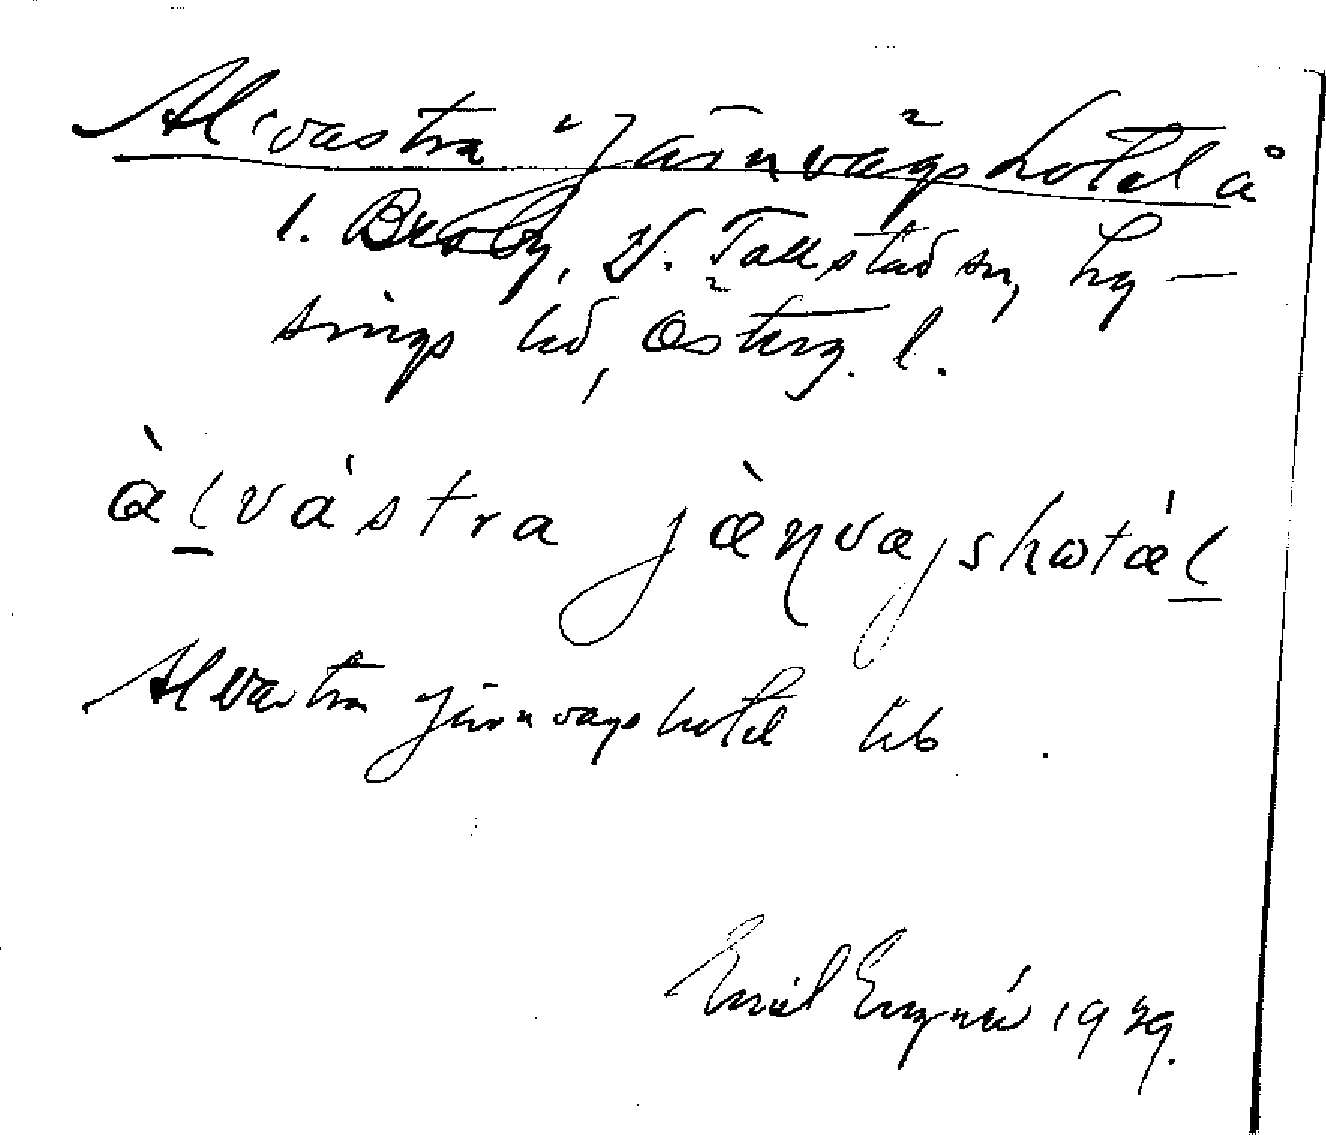 Alvastra järnvägshotel å
1. Broby, V. Tollstad sn, Ly-
sings hd, Österg. l.
àlvástra jæ̀ɳvæjshωtǽl
Alvastra järnvägshotel kb
Emil Engné 1929.